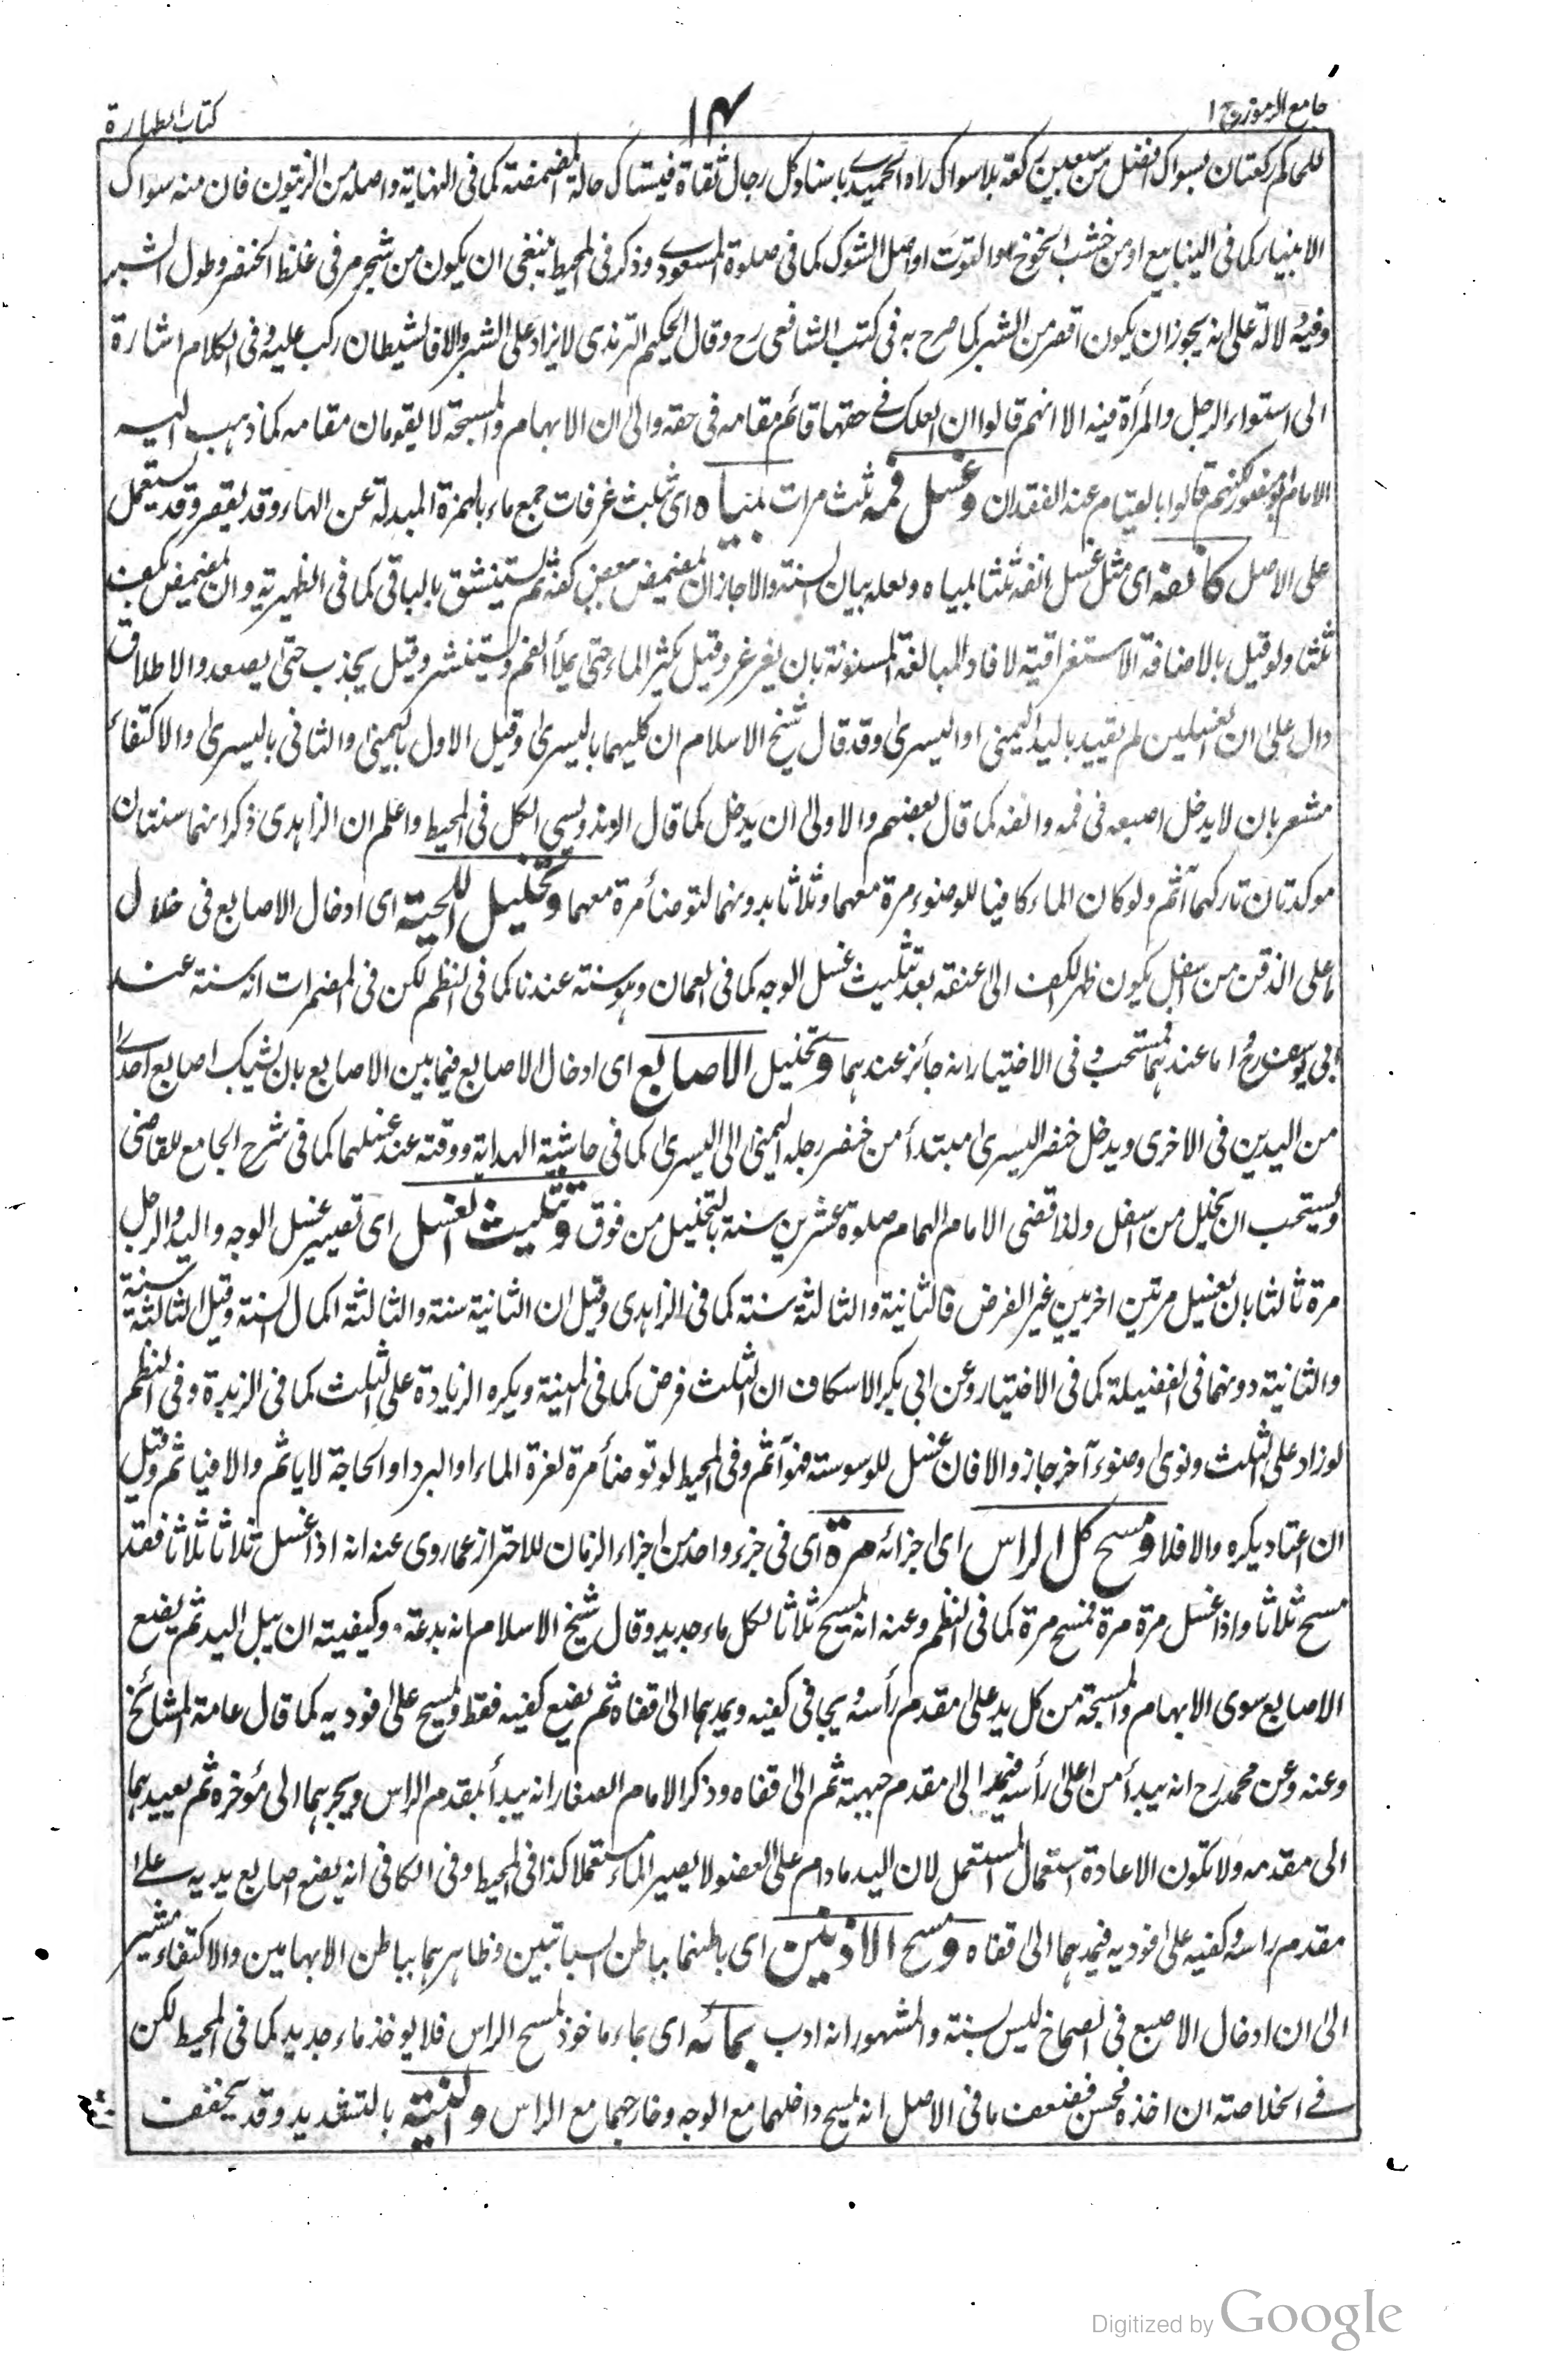 جامع الرموز ج ١
١٤
كتاب الطهارة
للحاكم ركعتان بسواك افضل من سبعين ركعة بلا سواك راه الحميدى باسناد كل رجال ثقاة فيستاك حالة المضمضة كما فى النهاية واصله من الزيتون فان منه سواك
الانبياء كما فى الينابيع او من خشب الخوخ او التوت او اصل الشوك كما فى صلوة المسعودى وذكر فى المحيط ينبغى ان يكون من شجر مر فى غلظ الخنصر وطول الشبر
وفيه دلالة على انه يجوز ان يكون اقصر من الشبر كما صرح به فى كتب الشافعى رح وقال الحكيم الترمذى لا يزاد على الشبر والا فالشيطان ركب عليه وفى الكلام اشارة
الى استواء الرجل والمرأة فيه الا انهم قالوا ان العلك فى حقها قائم مقامه فى حقه والى ان الابهام والمسبحة لا يقومان مقامه كما ذهب اليه
الامام ابو منصور لكنهم قالوا بالقيام عند الفقدان وغسل فمه ثلث مرات بمياه اى ثلث غرفات جمع ماء بالهمزة المبدلة عن الهاء وقد يقصر وقد يستعمل
على الاصل كانفه اى مثل غسل انفه ثلثا بمياه ولعله بيان السنة والا جاز ان يمضمض ببعض كفه ثم يستنشق بالباقى كما فى الظهيرية وان يمضمض بكف
ثلثا ولو قيل بالاضافة الاستغراقية لافاد المبالغة المسنونة بان يغرغر وقيل يكثر الماء حتى يملأ الفم ويستنثر وقيل يجذب حتى يصعد والاطلاق
دال على ان الغسلين لم يقيد باليد اليمنى او اليسرى وقد قال شيخ الاسلام ان كليهما باليسرى وقيل الاول باليمنى والثانى باليسرى والاكتفاء
مشعر بان لا يدخل اصبعه فى فمه وانفه كما قال بعضهم والاولى ان يدخل كما قال الزندويسى الكل فى المحيط واعلم ان الزاهدى ذكر انهما سنتان
موكدتان تاركهما آثم ولو كان الماء كافيا للوضوء مرة معهما وثلاثا بدونهما لتوضأ مرة معهما وتخليل اللحية اى ادخال الاصابع فى خلال
ما على الذقن من اسفل يكون ظهر الكف الى عنقه بعد تثليث غسل الوجه كما فى العمان وهو سنة عندنا كما فى النظم لكن فى المضمرات انه سنة عند
ابى يوسف رح اما عندهما فمستحب وفى الاختيار انه جائز عندهما وتخليل الاصابع اى ادخال الاصابع فيما بين الاصابع بان يشبك اصابع احدى
من اليدين فى الاخرى ويدخل خنصر اليسرى مبتدأ من خنصر رجله اليمنى الى اليسرى كما فى حاشية الهداية ووقته عند غسلهما كما فى شرح الجامع للقاضى
ويستحب ان يخلل من اسفل ولذا قضى الامام الهمام صلوة عشرين سنة بالتخليل من فوق وتثليث الغسل اى تصيير غسل الوجه واليد والرجل
مرة ثالثا بان يغسل مرتين اخريين غير الفرض فالثانية والثالثة سنة كما فى الزاهدى وقيل ان الثانية سنة والثالثة اكمال السنة وقيل الثالثة سنة
والثانية دونها فى الفضيلة كما فى الاختيار وعن ابى بكر الاسكاف ان الثلث فرض كما فى المنية ويكره الزيادة على الثلث كما فى الزبدة وفى النظم
لو زاد على الثلث ونوى وضوء آخر جاز والا فان غسل للوسوسة فهو آثم وفى المحيط لو توضأ مرة لعزة الماء او البرد او الحاجة لا ياثم والا فياثم وقيل
ان اعتاد يكره والا فلا ومسح كل الراس اى اجزائه مرة اى فى جزء واحد من اجزاء الزمان للاحتراز عما روى عنه انه اذا غسل ثلاثا ثلاثا فقد
مسح ثلاثا واذا غسل مرة مرة فمسح مرة كما فى النظم وعنه انه يمسح ثلاثا لكل ماء جديد وقال شيخ الاسلام انه بدعة وكيفيته ان يبل اليد ثم يضع
الاصابع سوى الابهام والمسبحة من كل يد على مقدم رأسه ويجافى كفيه ويمدهما الى قفاه ثم يضع كفيه فقط ويمسح على فوديه كما قال عامة المشائخ
وعنه وعن محمد رح انه يبدأ من اعلى رأسه فيمد الى مقدم جبهته ثم الى قفاه وذكر الامام الصفار انه يبدأ بمقدم الراس ويجرهما الى مؤخره ثم يعيدهما
الى مقدمه ولا تكون الاعادة استعمال المستعمل لان اليد ما دام على العضو لا يصير الماء مستعملا كذا فى المحيط وفى الكافى انه يضع اصابع يديه على
مقدم راسه وكفيه على فوديه فيمدهما الى قفاه ومسح الاذنين اى باطنهما بباطن السبابتين وظاهرهما بباطن الابهامين والاكتفاء مشير
الى ان ادخال الاصبع فى الصماخ ليس بسنة والمشهور انه ادب بمائه اى بماء ماخوذ لمسح الراس فلا يوخذ ماء جديد كما فى المحيط لكن
فى الخلاصة ان اخذه فحسن فضعف ما فى الاصل انه يمسح داخلهما مع الوجه وخارجهما مع الراس والنية بالتشديد وقد يخفف
Digitized by Google